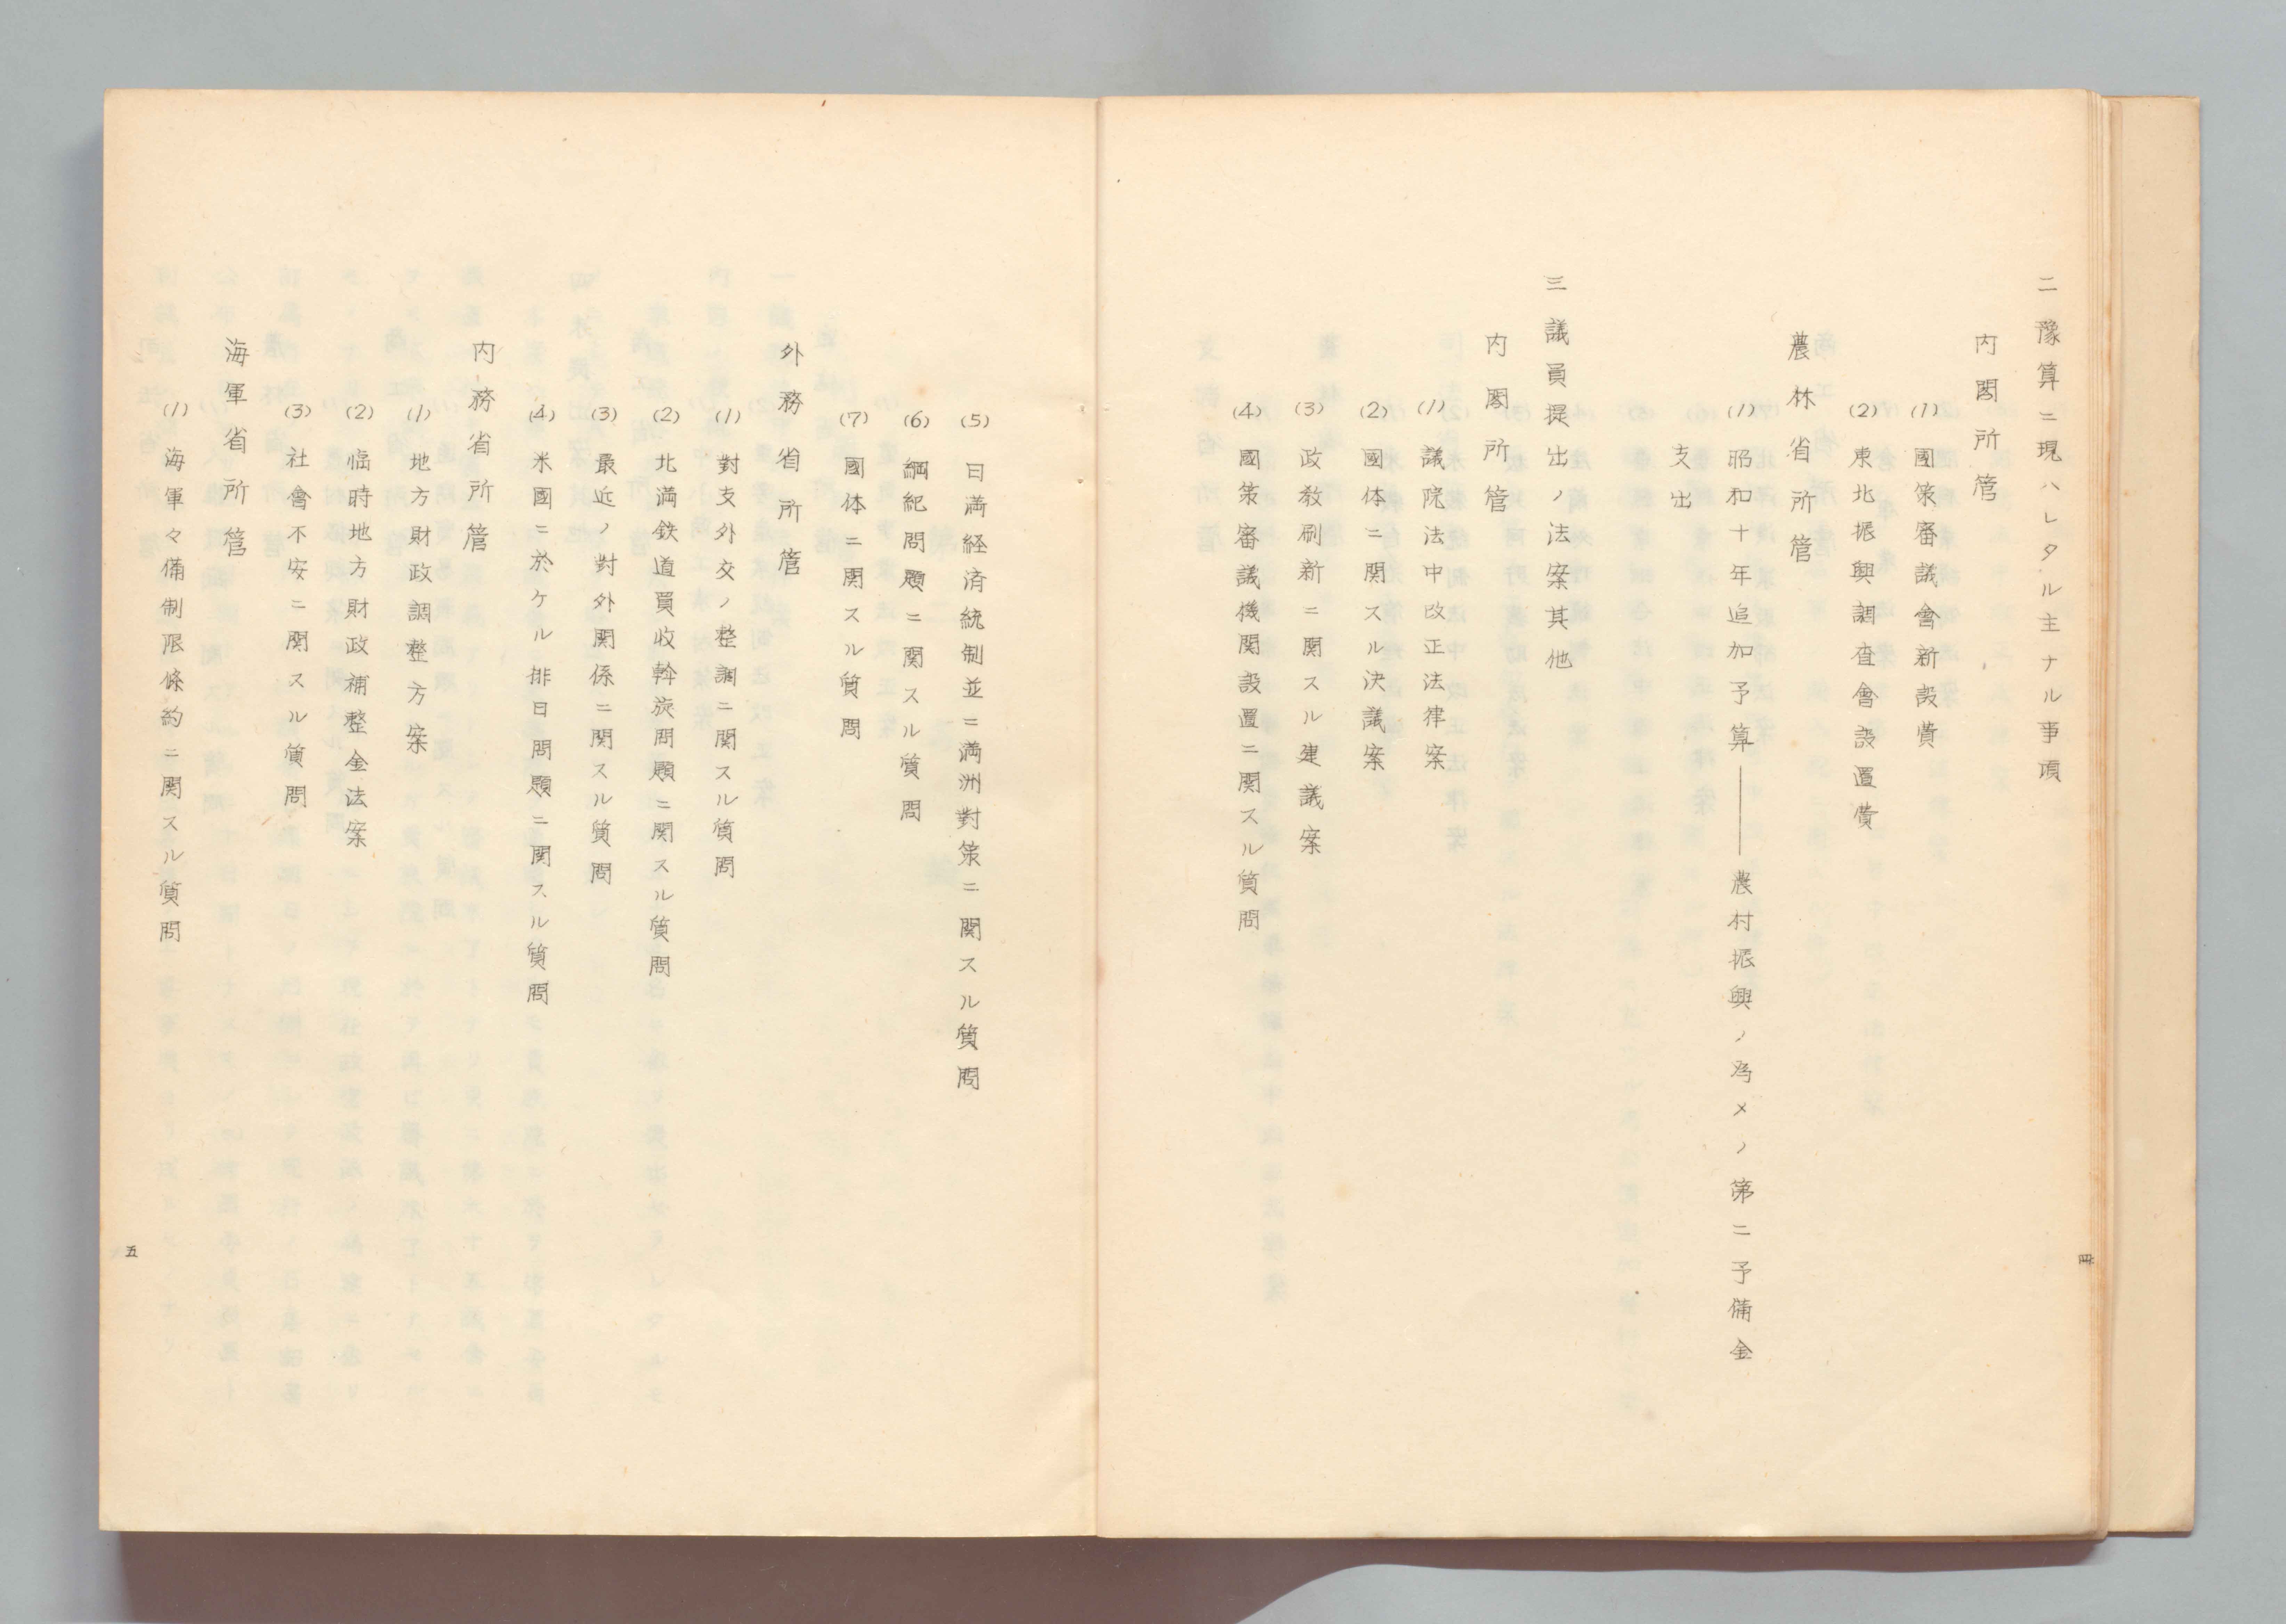 二豫算ニ現ハレタル主ナル事項
内閣所管
(1)國策審議會新設費
(2)東北振興調査會設置費
農林省所管
(1)昭和十年追加予算――農村振興ノ為メノ第二予備金
支出
三議員提出ノ法案其他
内閣所管
(1)議院法中改正法律案
(2)國体ニ関スル決議案
(3)政教刷新ニ関スル建議案
(4)國策審議機関設置ニ関スル質問
四
(5)日満経済統制並ニ満洲對策ニ関スル質問
(6)綱紀問題ニ関スル質問
(7)國体ニ関スル質問
外務省所管
(1)對支外交ノ整調ニ関スル質問
(2)北満鉄道買收斡旋問題ニ関スル質問
(3)最近ノ對外関係ニ関スル質問
(4)米國ニ於ケル排日問題ニ関スル質問
内務省所管
(1)地方財政調整方案
(2)臨時地方財政補整金法案
(3)社會不安ニ関スル質問
海軍省所管
(1)海軍々備制限條約ニ関スル質問
五